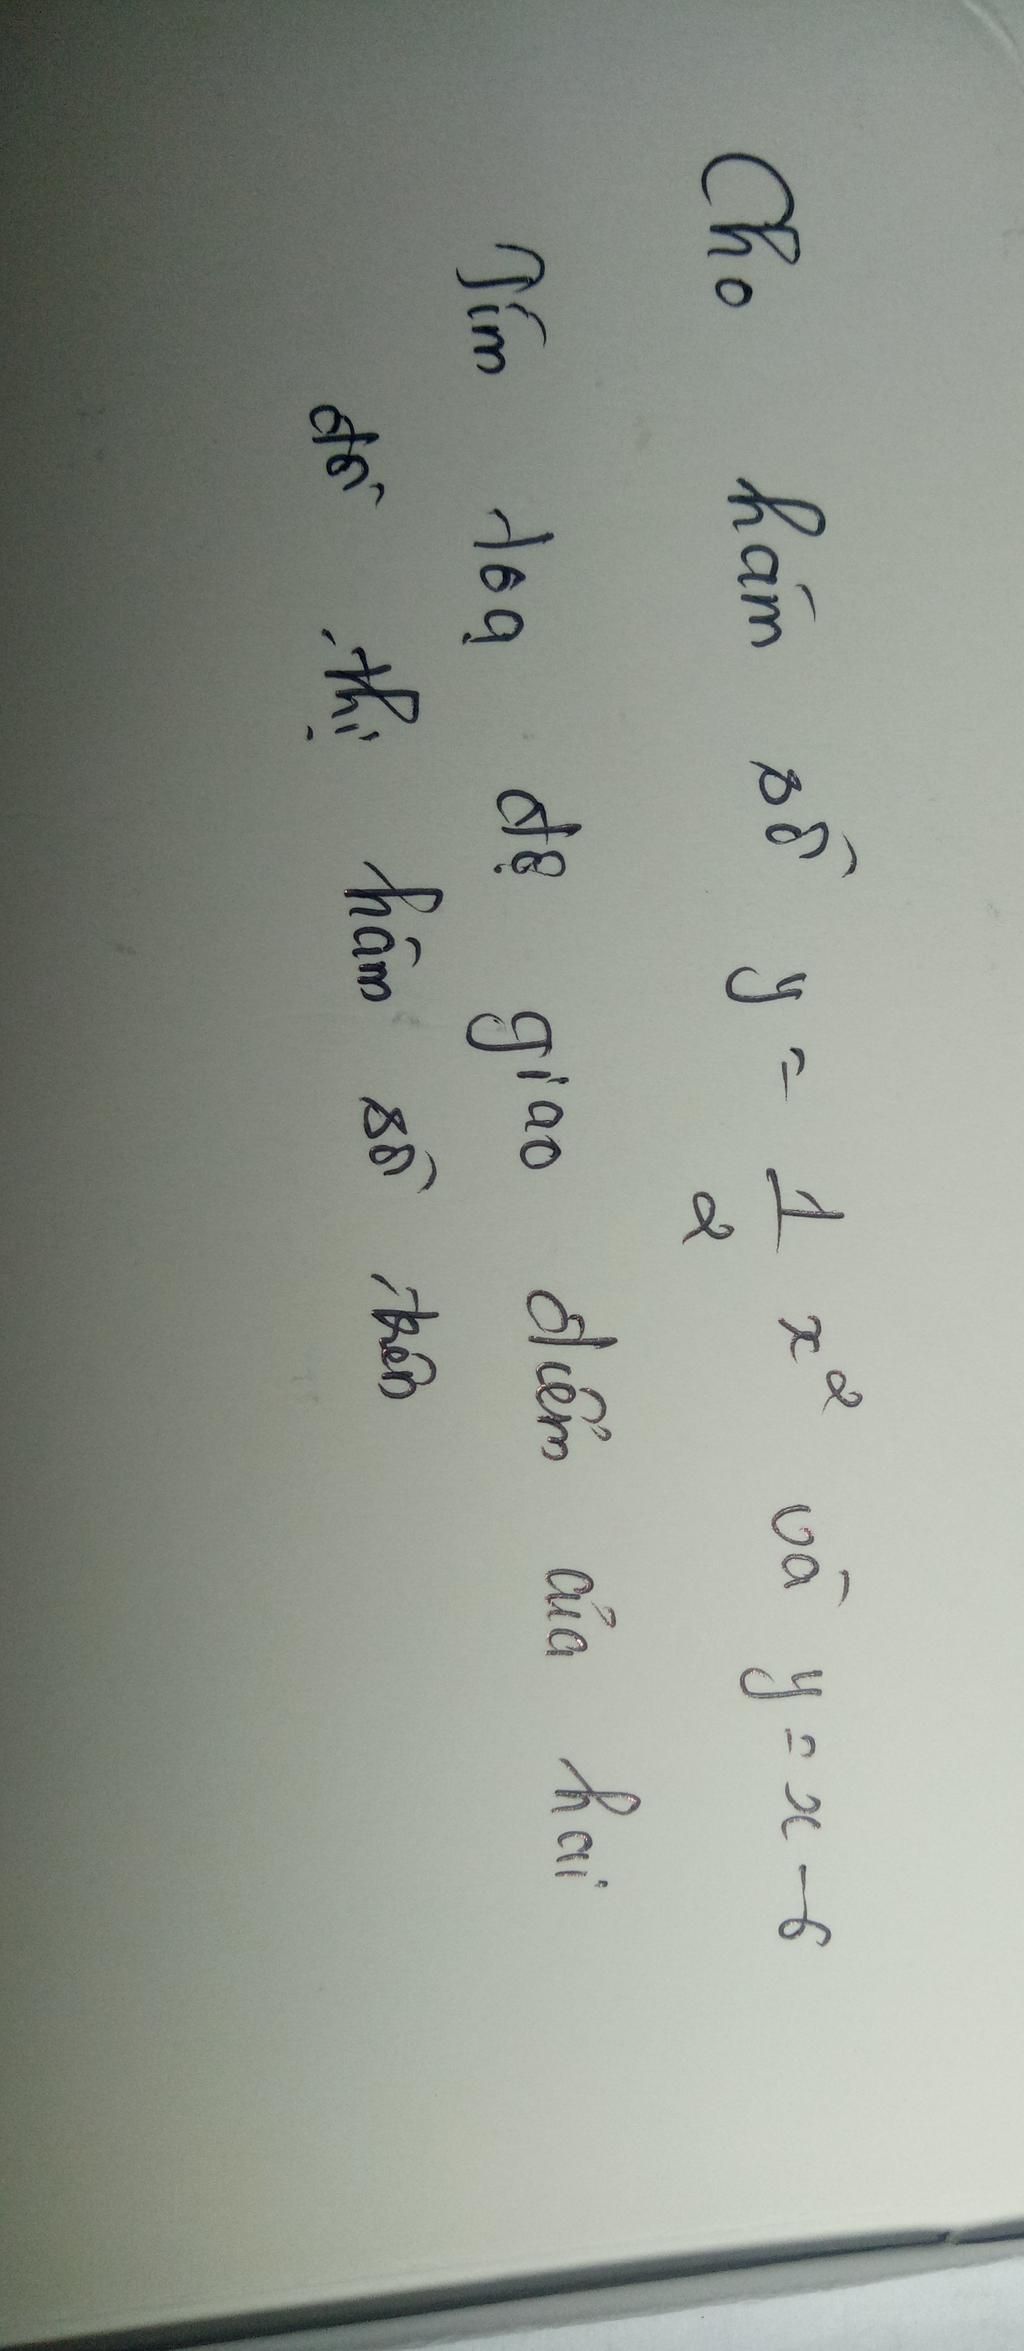 Cho hàm số y = 1/2 x² và y = x - 6
Tìm toạ độ giao điểm của hai
đồ thị hàm số trên